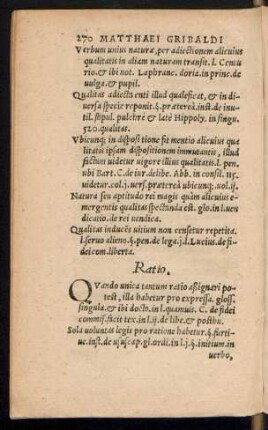 270 MATTHAEI GRIBALDI
Verbum unius naturæ, per adiectionem alicuius
qualitatis in aliam naturam transit. l. Centu
rio. & ibi not. Laphranc. doria. in princ. de
vulga. & pupil.
Qualitas adiecta enti illud qualeficat, & in di-
uersa specie reponit. §. præterea. inst. de inu-
til. stipul. pulchrè & latè Hippoly. in singu.
510. qualitas.
Vbicunq; in dispositione fit mentio alicuius qua
litatis ipsam dispositionem immutantis, illud
fictum uidetur uigore illius qualitatis. l. penu
ubi Bart. C. de iur. delibe. Abb. in consil.
uidetur. col. j. uers. præterea ubicunq. uol. ij.
Natura seu aptitudo rei magis quàm alicuius e-
mergentis qualitas spectanda est. glo. in l. uen
dicatio. de rei uendica.
Qualitas inducēs uitium non censetur repetita.
l. seruo alieno. §. pen. de lega. j. l. Lucius. de fi-
dei com. liberta.
Ratio.
QVando unica tantum ratio assignari po-
test, illa habetur pro expressa. gloss.
singula. & ibi doct. in l. quamuis. C. de fidei
commis. facit tex. in l. ij. de libe. & posthu.
Sola voluntas legis pro ratione habetur. §. furti-
uæ. inst. de usucap. gl. ordi. in l. j. §. initium. in
uerbo,